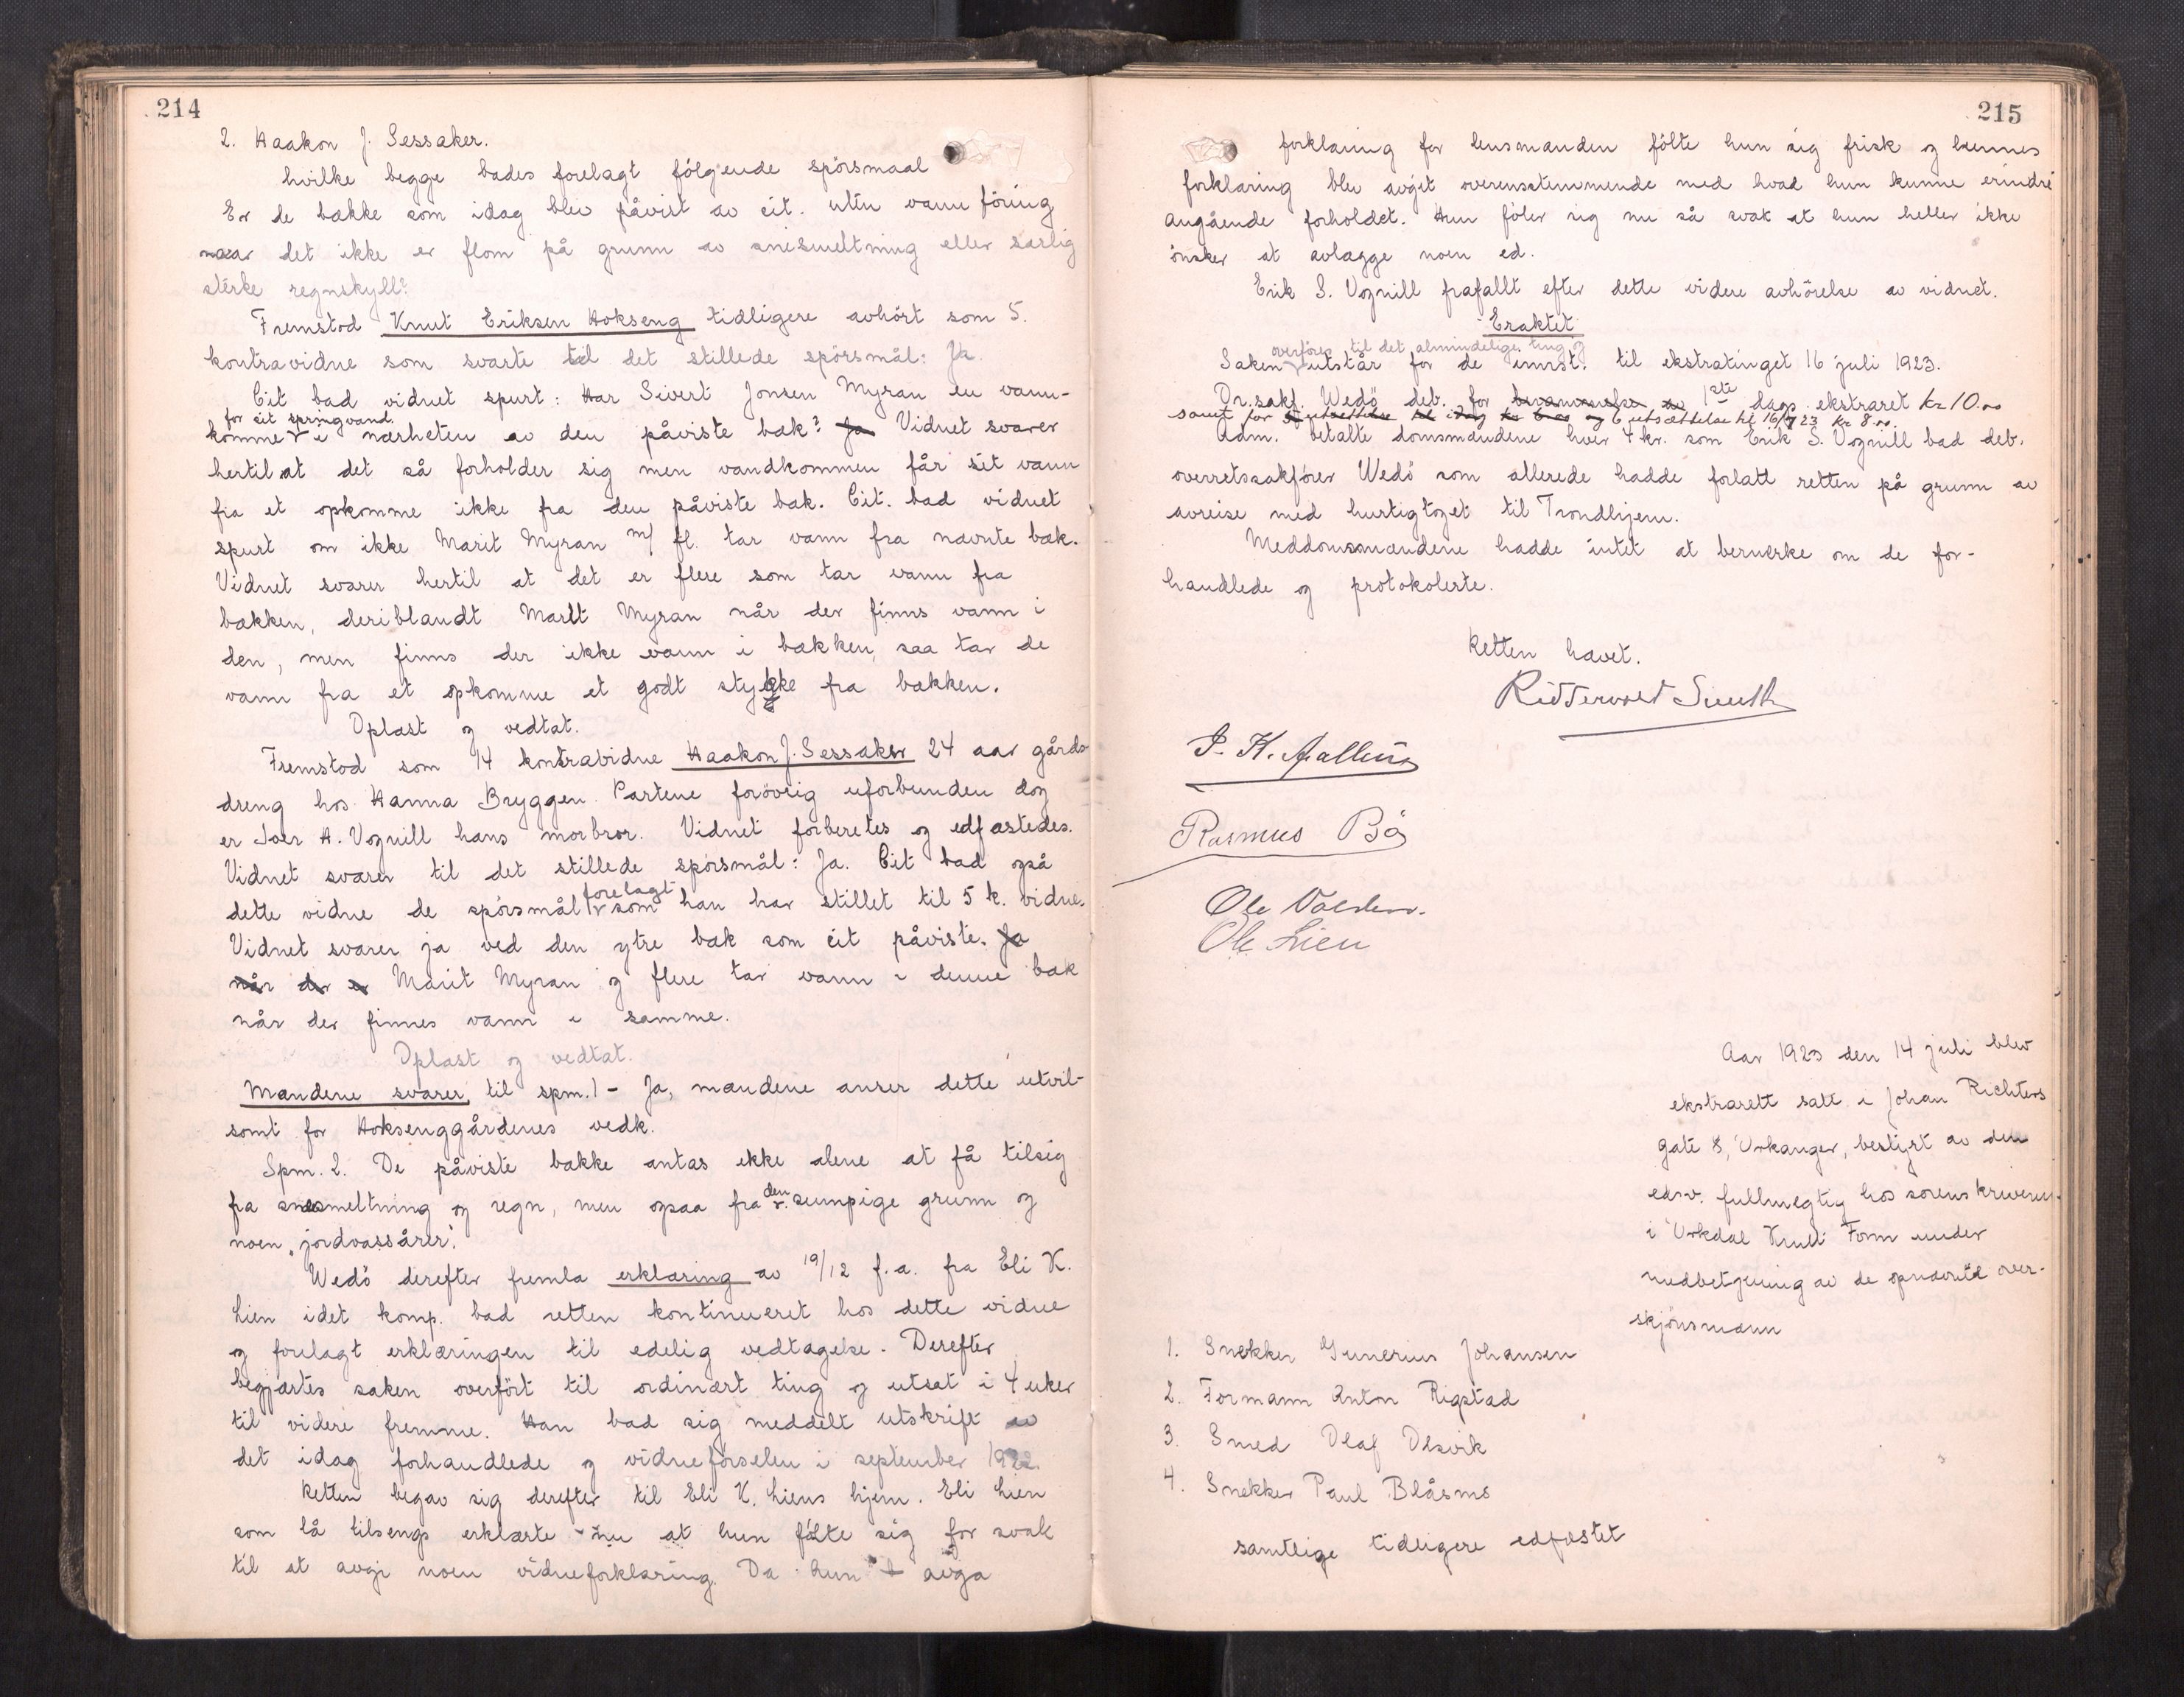 214
2. Haakon J. Sessaker.
hvilke begge bades forelagt følgende spörsmaal
Er de bække som idag blev påvist av cit. uten vann föring
naar det ikke er flom på grunn av snesmeltning eller særlig
stærke regnskyll?
Fremstod Knut Eriksen Hokseng tidligere avhørt som 5.
kontravidne som svarte til det stillede spörsmål: Ja.
Cit bad vidnet spurt: Har Sivert Jonsen Myran en vann-
for sit springvand
komme i nærheten av den påviste bæk? Ja Vidnet svarer
hertil at det så forholder sig men vandkommen får sit vann
fra et opkomme ikke fra den påviste bæk. Cit. bad vidnet
spurt om ikke Marit Myran m/ fl. tar vann fra nævnte bæk.
Vidnet svarer hertil at det er flere som tar vann fra
bækken, deriblandt Marit Myran når der finns vann i
den, men finns der ikke vann i bækken, saa tar de
vann fra et opkomme et godt stykke fra bækken.
Oplæst og vedtat.
Fremstod som 14 kontravidne Haakon J. Sessaker 24 aar gårds
dreng hos Hanna Bryggen. Partene forövrig uforbunden dog
er Ioer A. Vognill hans morbror. Vidnet forberetes og edfæstedes.
Vidnet svarer til det stillede spörsmål: Ja. Cit bad også
forelagt
dette vidne de spörsmål som han har stillet til 5 k. vidne.
Vidnet svarer ja ved den ytre bæk som cit påviste. Ja
når der er Marit Myran og flere tar vann i denne bæk
når der finnes vann i samme.
Oplæst og vedtat.
Mændene svarer til spm. 1 - Ja, mændene anser dette utvil-
somt for Hoksenggårdenes vedk.
Spm. 2. De påviste bække antas ikke alene at få tilsig
den
fra snesmeltning og regn, men ogsaa fra sumpige grunn og
noen "jordvassårer".
Wedö derefter fremla erklæring av 19/12 f.a. fra Eli K.
Lien idet komp. bad retten kontinueret hos dette vidne
og forelagt erklæringen til edelig vedtagelse. Derefter
begjærtes saken overfört til ordinært ting og utsat i 4 uker
til videre fremme. Han bad sig meddelt utskrift av
det idag forhandlede og vidneförselen i september 1922.
Retten begav sig derefter til Eli K. Liens hjem. Eli Lien
som lå tilsengs erklærte nu at hun fölte sig for svak
til at avgi noen vidneforklaring. Da hun avga
215
forklaring for lensmanden fölte hun sig frisk og hennes
forklaring blev avgit overensstemmende med hvad hun kunne erindre
angående forholdet. Hun föler sig nu så svak at hun heller ikke
önsker at avlægge noen ed.
Erik S. Vognill frafallt efter dette videre avhörelse av vidnet.
Eraktet
overföres til det almindelige ting og
Saken utstår for de innst. til ekstratinget 16 juli 1923.
Or.sakf. Wedö deb. for berammelse av 1ste dags ekstraret Kr 10.00
samt for utsættelse til idag kr og 6 utsættelse til 16/7 23 kr 8.00.
Adm. betalte domsmændene hver 4 kr. som Erik S. Vognill bad deb.
overretssakförer Wedö som allerede hadde forlatt retten på grunn av
avreise med hurtigtoget til Trondhjem.
Meddomsmændene hadde intet at bemerke om de for-
handlede og protokolerte.
Retten hævet.
Ridderwold Smith
Rasmus Bö
Ole Lien
Aar 1923 den 14 juli blev
ekstrarett satt i Johan Richters
gate 8, Orkanger, bestyrt av den
edsv. fullmegtig hos sorenskriveren
i Orkdal Knut Form under
medbetjening av de opnævnte over-
skjönsmænn
1. Snekker Gunerius Johansen
2. Formann Anton Rigstad
3. Smed Olaf Olsvik
4. Snekker Paul Blåsmo
samtlige tidligere edfæstet